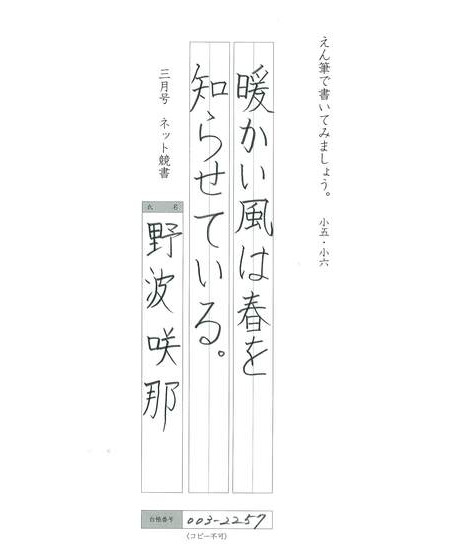 えん筆で書いてみましょう。 小五・小六
暖かい風は春を
知らせている。
三月号 ネット競書
氏名
野波咲那
台帳番号 003-2257
(コピー不可)